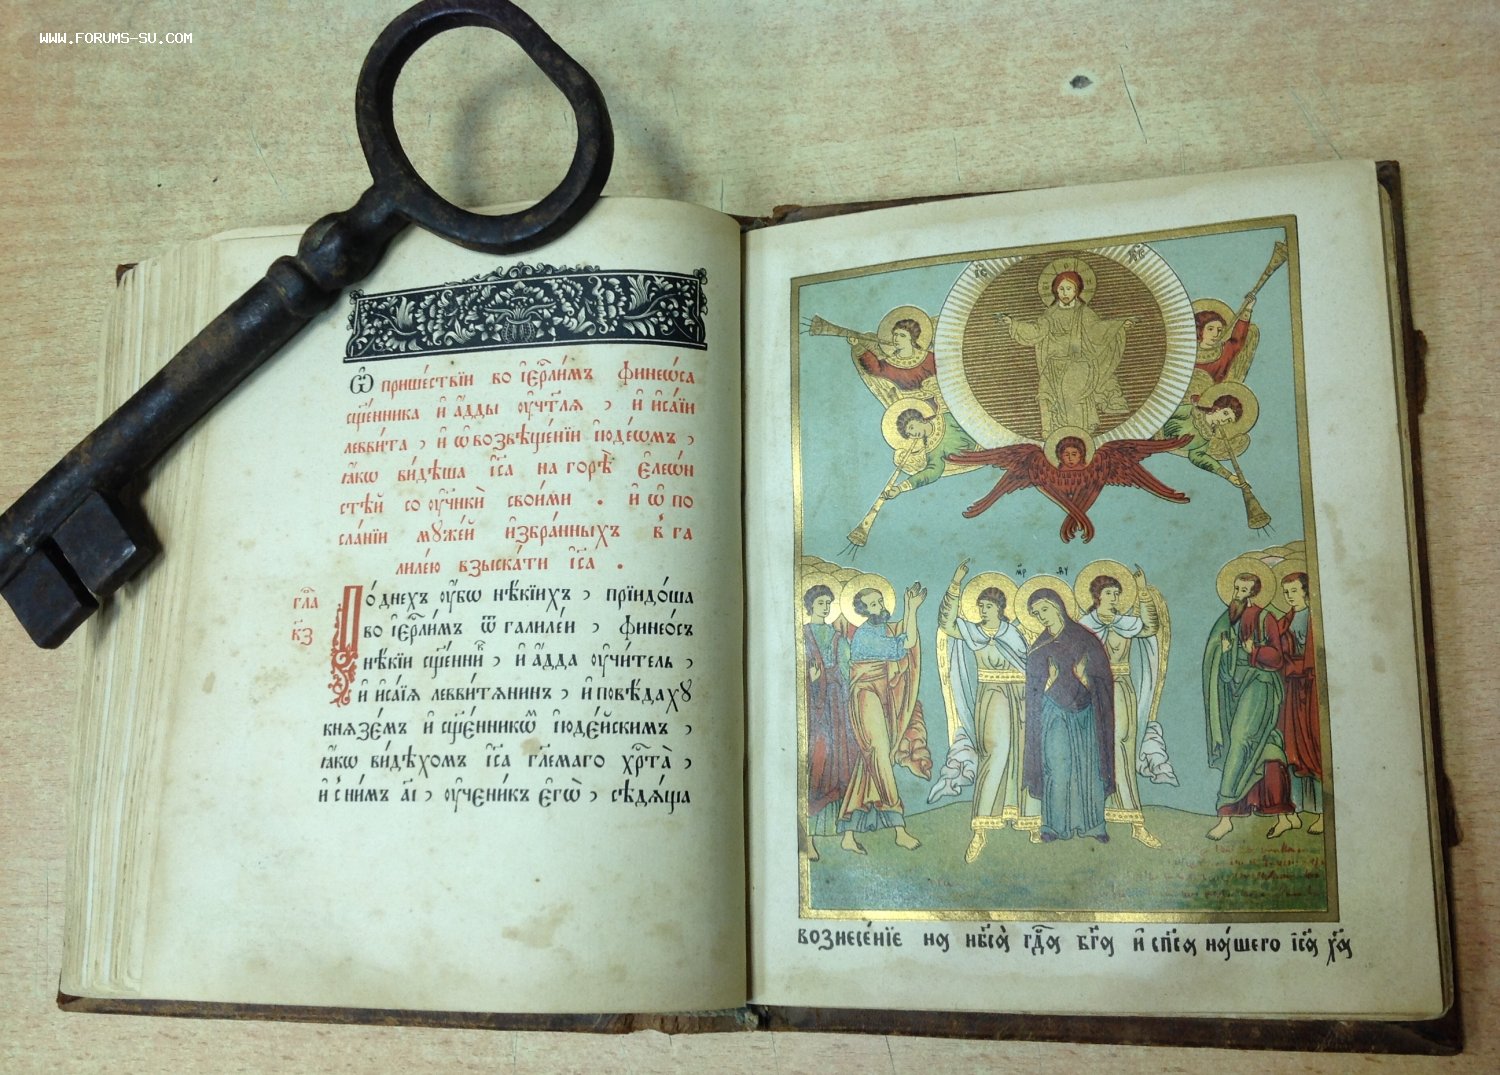 WWW.FORUMS-SU.COM
Ѽ прише́ствїи во і҆ерⷭ҇ли́мъ финее́ѡса
сщ҃е́нника и҆ а҆́дды ᲂу҆чт҃лѧ , и҆ и҆са́їи
левви́та , и҆ ѡ҆ возвѣще́нїи і҆ꙋде́ѡмъ ,
ꙗ҆́кѡ ви́дѣша і҆с҃а на горѣ̀ є҆леѡ́н
стѣ́й со ᲂу҆чн҃кѝ свои́ми . и҆ ѡ҆ по
сла́нїи мꙋже́й и҆збра́нныхъ в̾ га
лиле́ю взыска́ти і҆с҃а .
гла
к҃з
По́ днехъ ᲂу҆́бѡ нѣ́кїихъ , прїидо́ша
во і҆ерⷭ҇ли́мъ ѿ галиле́и , финео́съ
нѣ́кїи сщ҃е́нникъ , и҆ а҆́дда ᲂу҆чи́тель ,
и҆ и҆са́їѧ левви́тѧнинъ , и҆ повѣ́дахꙋ
кнѧзе́мъ и҆ сщ҃е́нникѡмъ і҆ꙋде́йскимъ ,
ꙗ҆́кѡ ви́дѣхомъ і҆с҃а гл҃емаго хрⷭ҇та̀ ,
и҆ с̾ ни́мъ а҃і , ᲂу҆ченикъ є҆гѡ̀ , сѣдѧ́ща
і҆с҃
хс҃
мр҃
ѳꙋ
вознесе́нїе на нб҃са̀ гдⷭ҇а бг҃а и҆ сп҃са на́шего і҆с҃а хрⷭ҇та